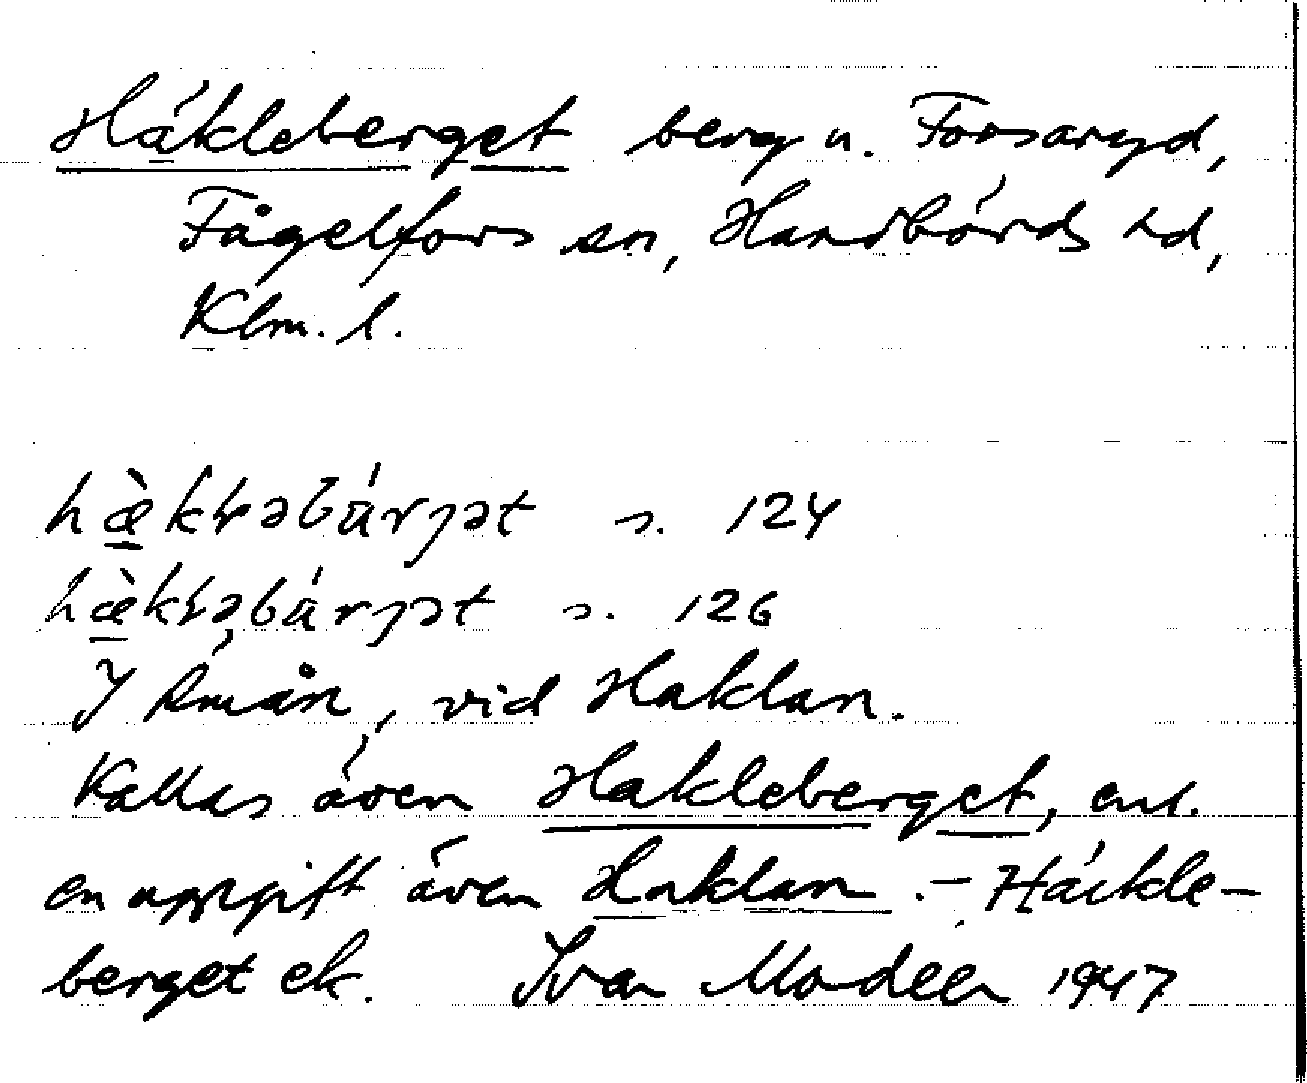 Häkleberget berg n. Forsaryd,
Fågelfors sn, Handbörds hd,
Klm. l.
hæ̀kɫəbärjət s. 124
hæ̀kɫəbärjət s. 126
I Emån, vid Haklan.
Kallas även Hakleberget, enl.
en uppgift även Haklan. – Häckle-
berget ek. Ivar Modéer 1947